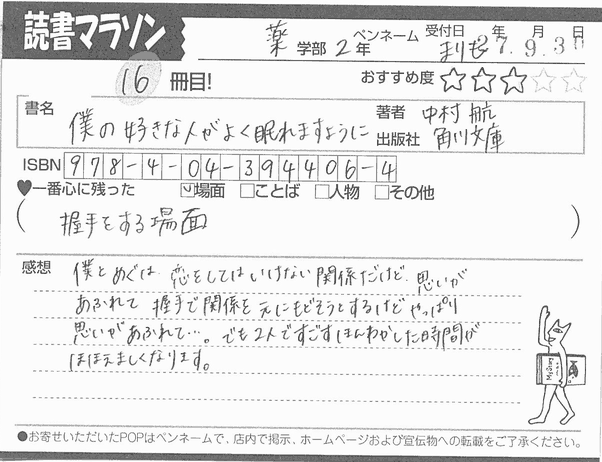 読書マラソン
薬 学部 2 年 ペンネーム まりも 受付日 年 月 日
7.9.30
16 冊目!
おすすめ度 ☆☆☆☆☆
書名 僕の好きな人がよく眠れますように
著者 中村 航
出版社 角川文庫
ISBN 978-4-04-394406-4
♥一番心に残った ☑場面 □ことば □人物 □その他
(握手をする場面)
感想
僕とめぐは 恋をしてはいけない関係だけど、思いが
あふれて 握手で関係を元にもどそうとするけど やっぱり
思いがあふれて…。でも2人ですごすほんわかした時間が
ほほえましくなります。
●お寄せいただいたPOPはペンネームで、店内で掲示、ホームページおよび宣伝物への転載をご了承ください。